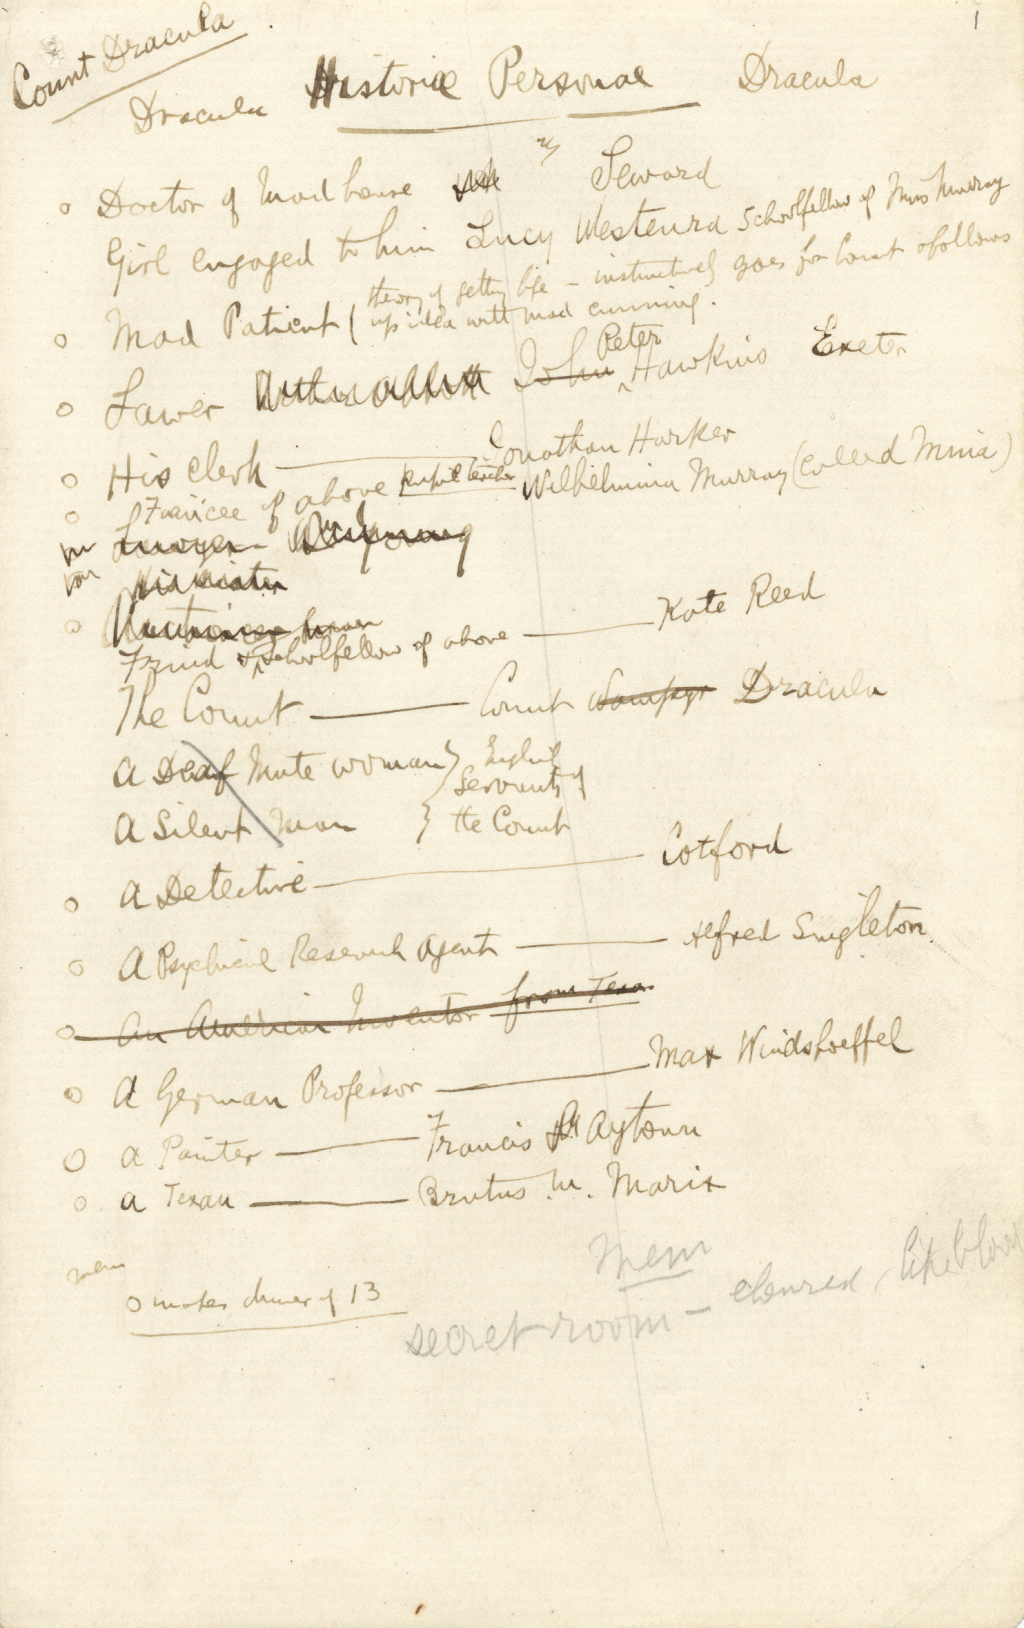 1
Count Dracula
Dracula Historiae Personae Dracula
Doctor of Mad house Seward
Girl engaged to him Lucy Westenra Schoolfellow of Miss Murray
Mad Patient (theory of getting life – instinctively goes for Count & follows
up idea with mad cunning.
Lawer Arthur Abbott John Peter Hawkins Exeter
His clerk — Jonathan Harker
Fiancée of above pupil teacher Wilhelmina Murray (called Mina)
Lawyer
His Sister
Friend & Schoolfellow of above — Kate Reed
The Count — Count Wampyr Dracula
A Deaf Mute woman } English
Servants of
A Silent Man } the Count
A Detective — Cotford
A Psychical Research Agent — Alfred Singleton.
An American Inventor from Texas
A German Professor — Max Windshoeffel
A Painter — Francis Aytown
A Texan — Brutus M. Marix
Mem
mem
secret room – coloured like blood
makes dinner of 13